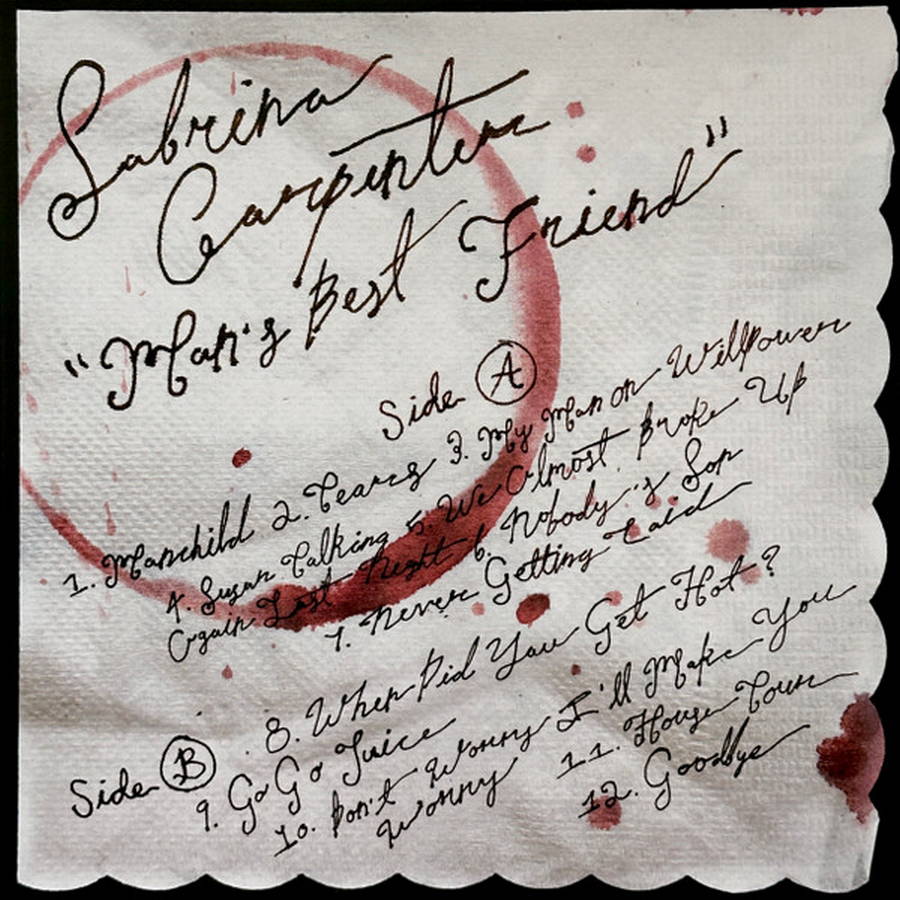 Sabrina
Carpenter
"Man's Best Friend"
Side A
1. Manchild 2. Tears 3. My Man on Willpower
4. Sugar Talking 5. We Almost Broke Up
Again Last Night 6. Nobody's Son
7. Never Getting Laid
Side B
8. When Did You Get Hot?
9. Go Go Juice
10. Don't Worry I'll Make You
Worry
11. House Tour
12. Goodbye